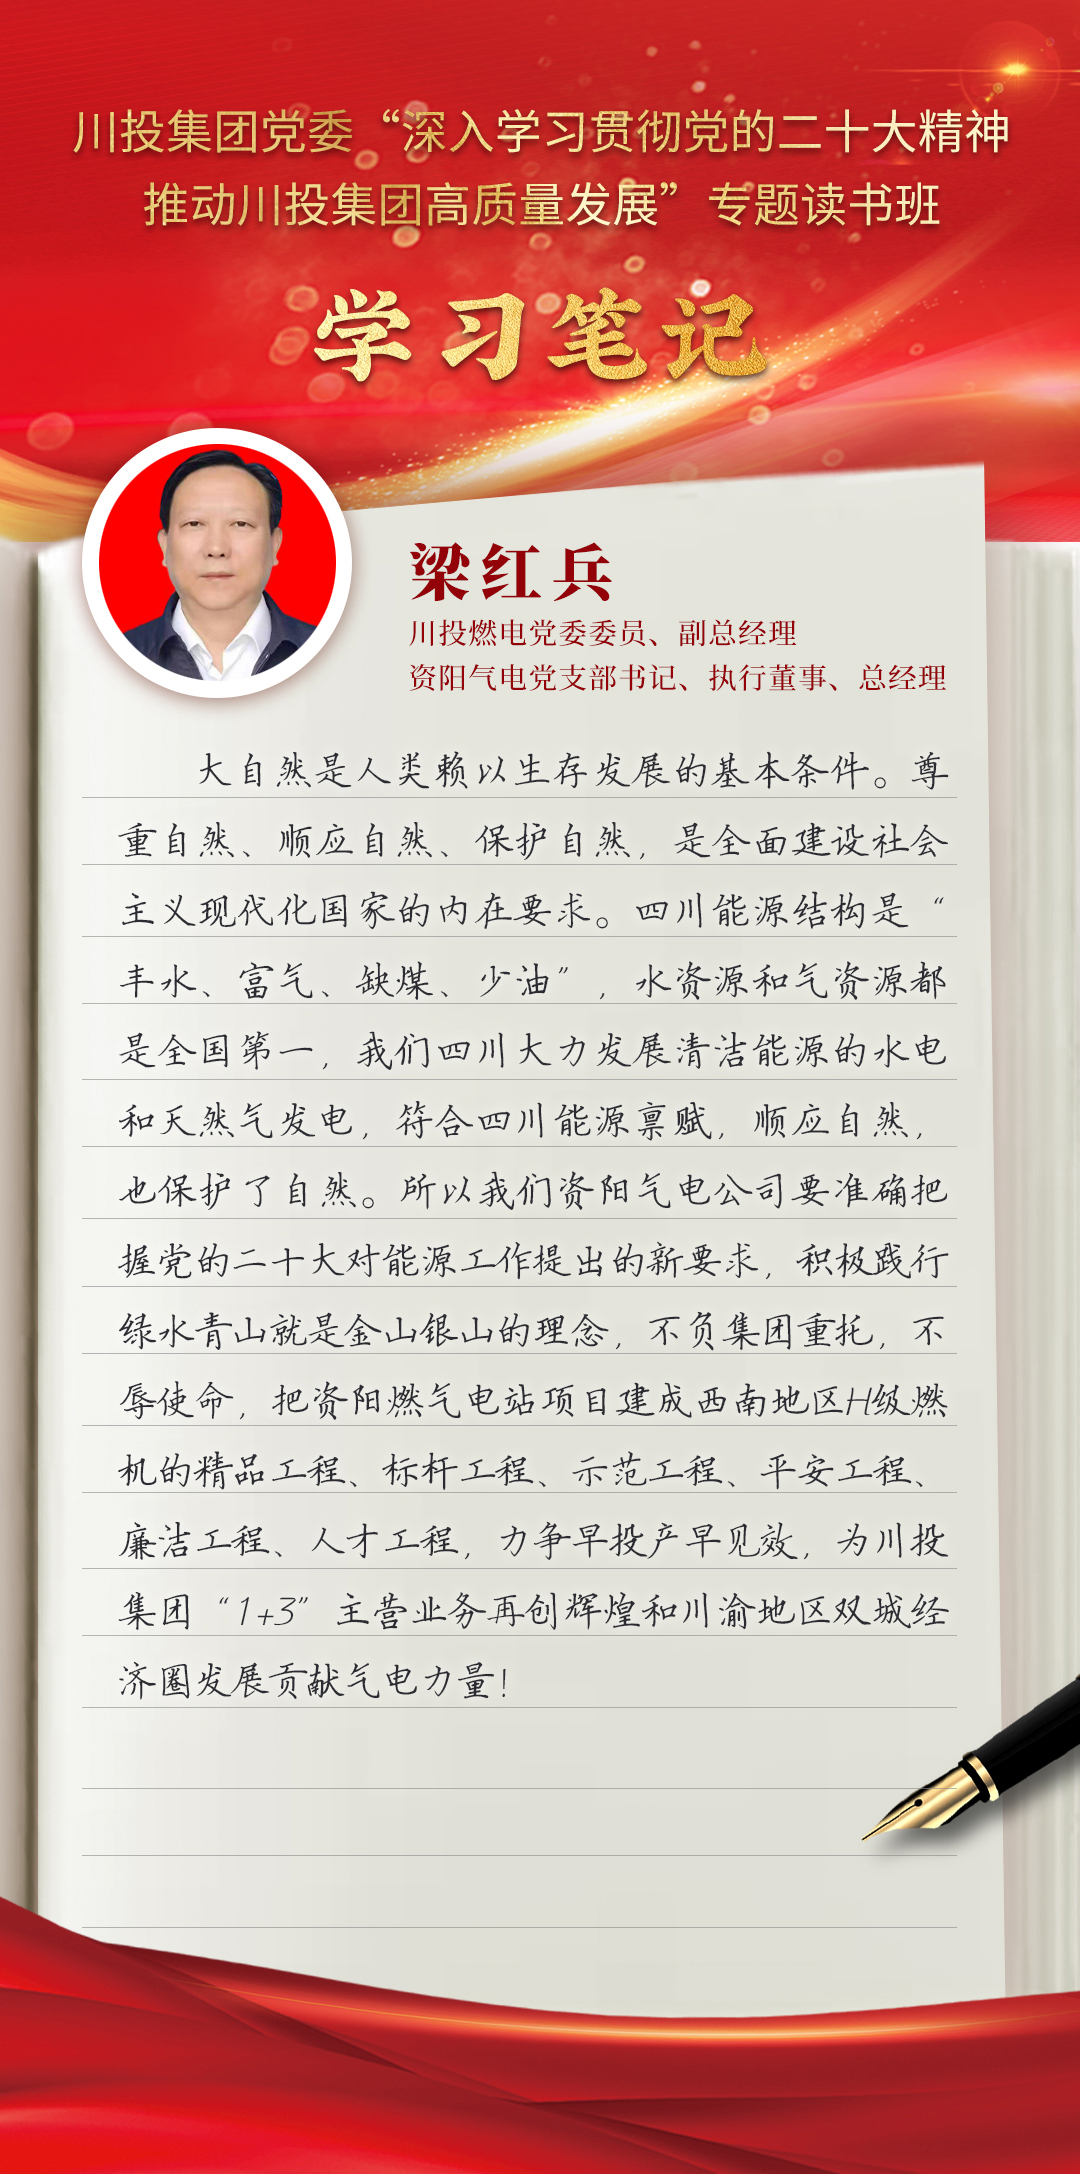 川投集团党委“深入学习贯彻党的二十大精神
推动川投集团高质量发展”专题读书班
学习笔记
梁红兵
川投燃电党委委员、副总经理
资阳气电党支部书记、执行董事、总经理
大自然是人类赖以生存发展的基本条件。尊
重自然、顺应自然、保护自然，是全面建设社会
主义现代化国家的内在要求。四川能源结构是“
丰水、富气、缺煤、少油”，水资源和气资源都
是全国第一，我们四川大力发展清洁能源的水电
和天然气发电，符合四川能源禀赋，顺应自然，
也保护了自然。所以我们资阳气电公司要准确把
握党的二十大对能源工作提出的新要求，积极践行
绿水青山就是金山银山的理念，不负集团重托，不
辱使命，把资阳燃气电站项目建成西南地区H级燃
机的精品工程、标杆工程、示范工程、平安工程、
廉洁工程、人才工程，力争早投产早见效，为川投
集团“1+3”主营业务再创辉煌和川渝地区双城经
济圈发展贡献气电力量！